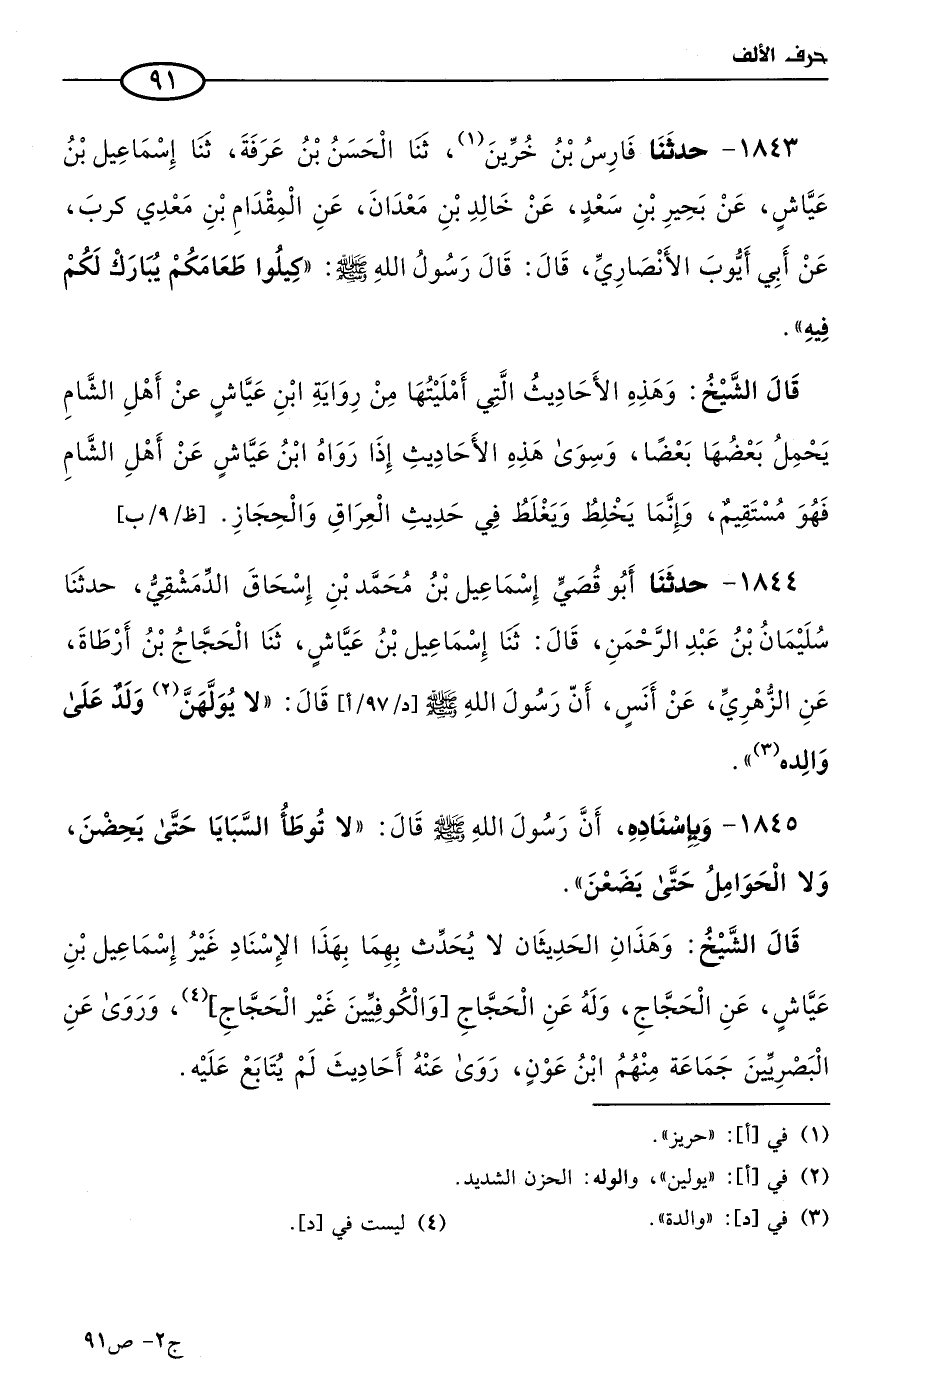 حرف الألف
٩١
١٨٤٣- حدثَنَا فَارِسُ بْنُ خُرِّينَ(١)، ثَنَا الْحَسَنُ بْنُ عَرَفَةَ، ثَنَا إِسْمَاعِيل بْنُ
عَيَّاشٍ، عَنْ بَحِيرِ بْنِ سَعْدٍ، عَنْ خَالِدِ بْنِ مَعْدَانَ، عَنِ الْمِقْدَامِ بْنِ مَعْدِي كربَ،
عَنْ أَبِي أَيُّوبَ الأَنْصَارِيِّ، قَالَ: قَالَ رَسُولُ اللهِ ﷺ: «كِيلُوا طَعَامَكُمْ يُبَارَكْ لَكُمْ
فِيهِ».
قَالَ الشَّيْخُ: وَهَذِهِ الأَحَادِيثُ الَّتِي أَمْلَيْتُهَا مِنْ رِوَايَةِ ابْنِ عَيَّاشٍ عنْ أَهْلِ الشَّامِ
يَحْمِلُ بَعْضُهَا بَعْضًا، وَسِوَىٰ هَذِهِ الأَحَادِيثِ إِذَا رَوَاهُ ابْنُ عَيَّاشٍ عَنْ أَهْلِ الشَّامِ
فَهُوَ مُسْتَقِيمٌ، وَإِنَّمَا يَخْلِطُ وَيَغْلَطُ فِي حَدِيثِ الْعِرَاقِ وَالْحِجَازِ. [ظ/٩/ب]
١٨٤٤- حدثَنَا أَبُو قُصَيٍّ إِسْمَاعِيل بْنُ مُحَمَّد بْنِ إِسْحَاقَ الدِّمَشْقِيُّ، حدثنَا
سُلَيْمَانُ بْنُ عَبْدِ الرَّحْمَنِ، قَالَ: ثَنَا إِسْمَاعِيل بْنُ عَيَّاشٍ، ثَنَا الْحَجَّاجُ بْنُ أَرْطَاةَ،
عَنِ الزُّهْرِيِّ، عَنْ أَنَسٍ، أَنّ رَسُولَ اللهِ ﷺ [د/٩٧/أ] قَالَ: «لا يُوَلَّهَنَّ(٢) وَلَدٌ عَلَىٰ
وَالِده(٣)».
١٨٤٥- وَبِإِسْنَادِهِ، أَنَّ رَسُولَ اللهِ ﷺ قَالَ: «لا تُوطَأُ السَّبَايَا حَتَّىٰ يَحِضْنَ،
وَلا الْحَوَامِلُ حَتَّىٰ يَضَعْنَ».
قَالَ الشَّيْخُ: وَهَذَانِ الحَدِيثَان لا يُحَدِّث بِهِمَا بِهَذَا الإِسْنَادِ غَيْرُ إِسْمَاعِيل بْنِ
عَيَّاشٍ، عَنِ الْحَجَّاجِ، وَلَهُ عَنِ الْحَجَّاجِ [وَالْكُوفِيِّينَ غَيْر الْحَجَّاجِ](٤)، وَرَوَىٰ عَنِ
الْبَصْرِيِّينَ جَمَاعَة مِنْهُمُ ابْنُ عَوْنٍ، رَوَىٰ عَنْهُ أَحَادِيثَ لَمْ يُتَابَعْ عَلَيْه.
(١) في [أ]: «حريز».
(٢) في [أ]: «يولين»، والوله: الحزن الشديد.
(٣) في [د]: «والدة». (٤) ليست في [د].
ج٢- ص٩١